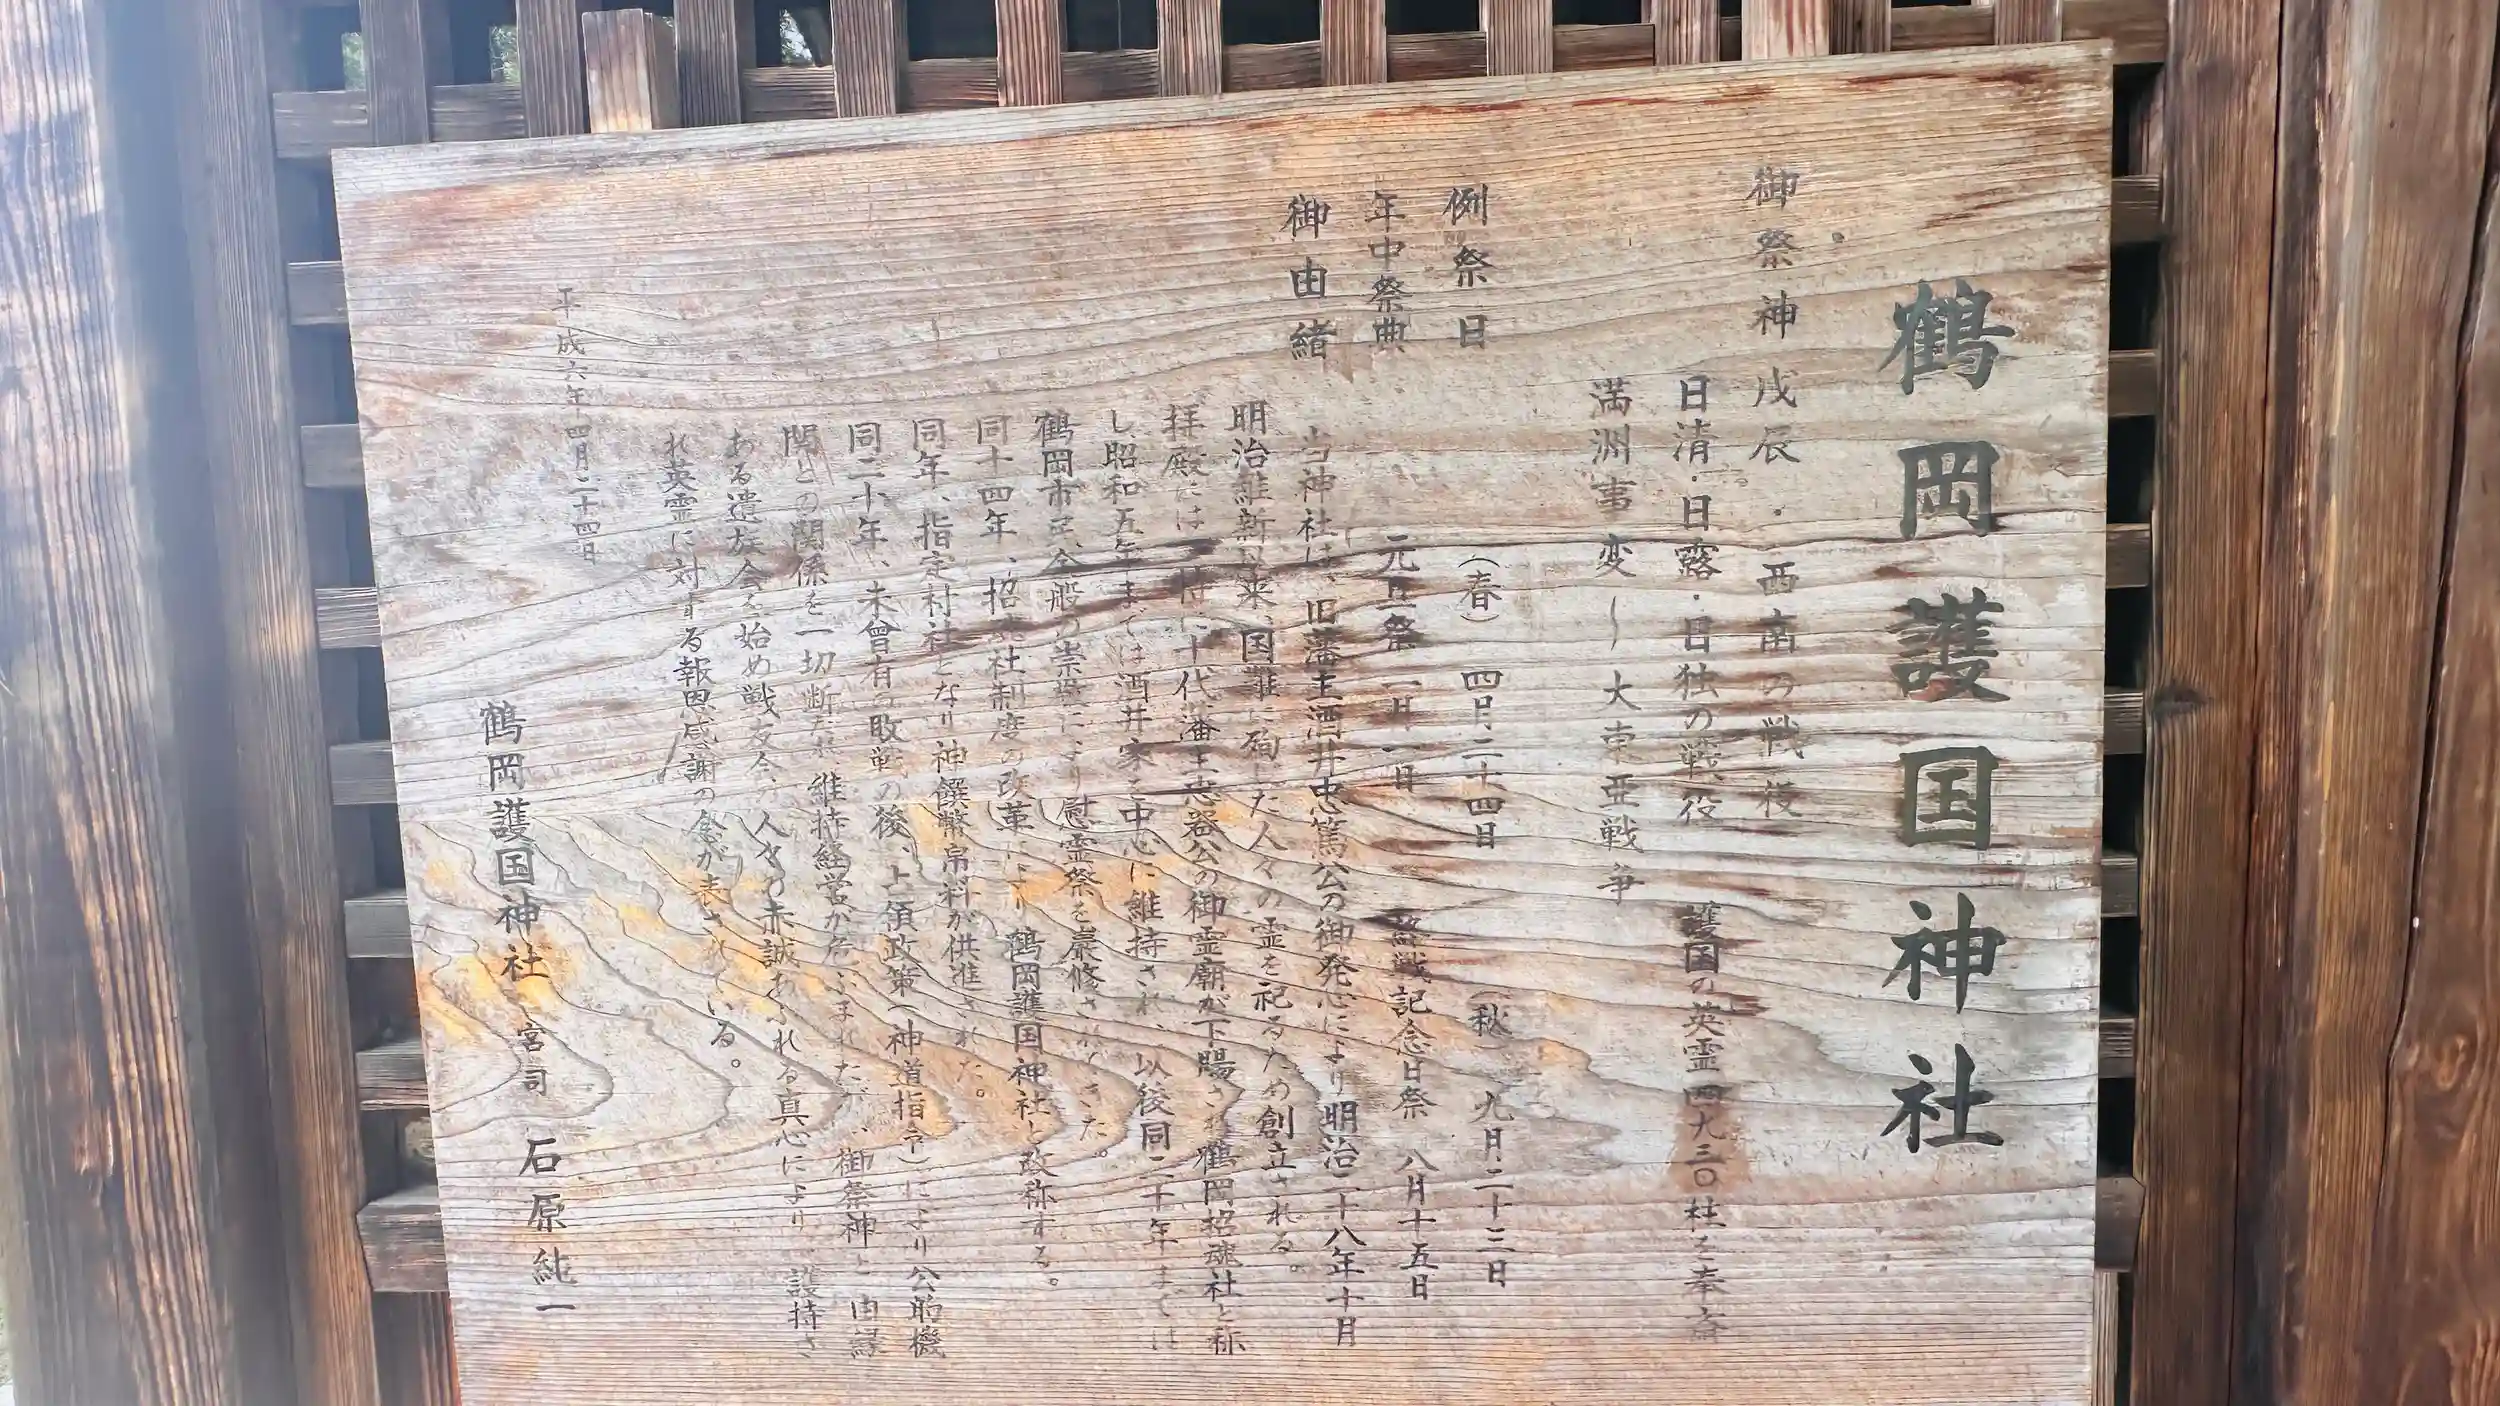 鶴岡護国神社
御祭神 戊辰・西南の戦役
日清・日露・日独の戦役 護国の英霊四九三〇柱を奉斎
満洲事変〜大東亜戦争
例祭日 (春) 四月二十四日 (秋) 九月二十三日
年中祭典 元旦祭 一月一日 終戦記念日祭 八月十五日
御由緒
当神社は、旧藩主酒井忠篤公の御発心により明治二十八年十月
明治維新以来、国難に殉した人々の霊を祀るため創立される。
拝殿には 十代藩主忠器公の御霊廟が下賜され鶴岡招魂社と称
し、昭和五年までは酒井家を中心に維持され、以後同二十年までは
鶴岡市民全般の崇敬により慰霊祭を厳修されてきた。
同十四年、招魂社制度の改革により鶴岡護国神社と改称する。
同年、指定村社となり神饌幣帛料が供進された。
同二十年、未曾有の敗戦の後、占領政策(神道指令)により公的機
関との関係を一切断たれ、維持経営が危ぶまれたが、御祭神と由縁
ある遺族会を始め戦友会の人々の赤誠あふれる真心により、護持さ
れ英霊に対する報恩感謝の念が表されている。
平成六年四月二十四日
鶴岡護国神社 宮司 石原純一